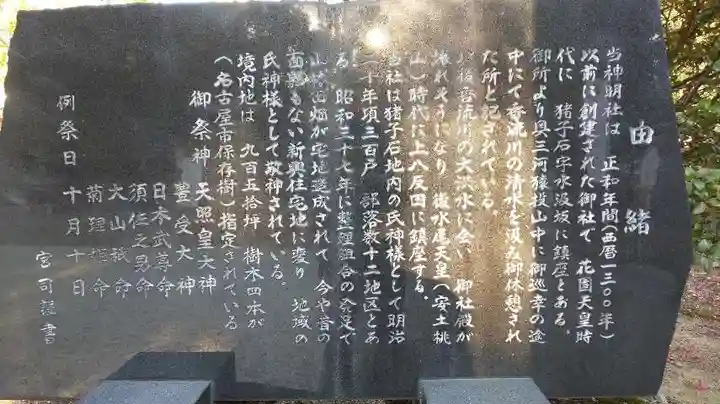 由緒
当神明社は 正和年間(西暦一三〇〇年)
以前に創建された御社で 花園天皇時
代に 猪子石字水汲坂に鎮座とある。
御所より奥三河猿投山中に御巡幸の途
中にて香流川の清水を汲み御休憩され
た所と記されている。
以後香流川の大洪水に会い 御社殿が
流れそうになり 後水尾天皇(安土桃
山)時代に上八反田に鎮座する。
当社は猪子石地内の氏神様として明治
二十年頃三百戸 部落数十二地区とあ
る。昭和三十七年に整理組合の発足で
山林田畑が宅地造成されて 今や昔の
面影もない新興住宅地に変り 地域の
氏神様として敬神されている。
境内地は 九百五拾坪 樹木四本が
(名古屋市保存樹)指定されている
御祭神 天照皇大神
豊受大神
日本武尊命
須佐之男命
大山祇命
菊理姫命
例祭日 十月十日
宮司謹書